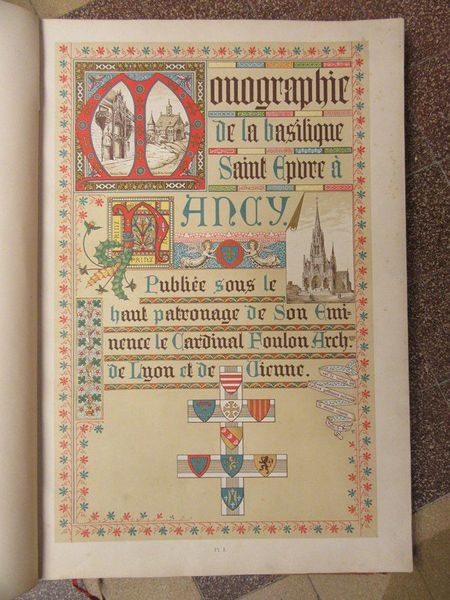 Monographie
de la basilique
Saint Epvre à
NANCY.
Publiée sous le
haut patronage de Son Emi-
nence le Cardinal Foulon Arch.
de Lyon et de Vienne.
Pl. I.